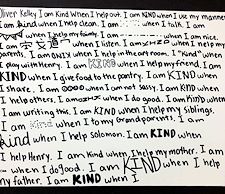 Oliver Kelley I am Kind when I help out. I am KIND when I use my manners
I am kind when I help clean. I am when I talk. I am
when I help my family. I am when I am nice.
I am when I listen. I am KIND when I help my
parents. I am when I help in the cartroom. I "Kind" when
I play with Henry. I am KIND when I help my friend. I am
KIND when I give food to the pantry. I am KIND when
I share. I am when I am not sassy. I am KIND when I
help others. I am when I do good. I am KIND when
I am writing this. I am KIND when I help my siblings.
I am kind when I to my Grandparents. I am
kind when I help solomon. I am KIND when
I help Henry. I am kind when I help my mother. I am
when I do good. I am KIND when I help
my father. I am KIND when I